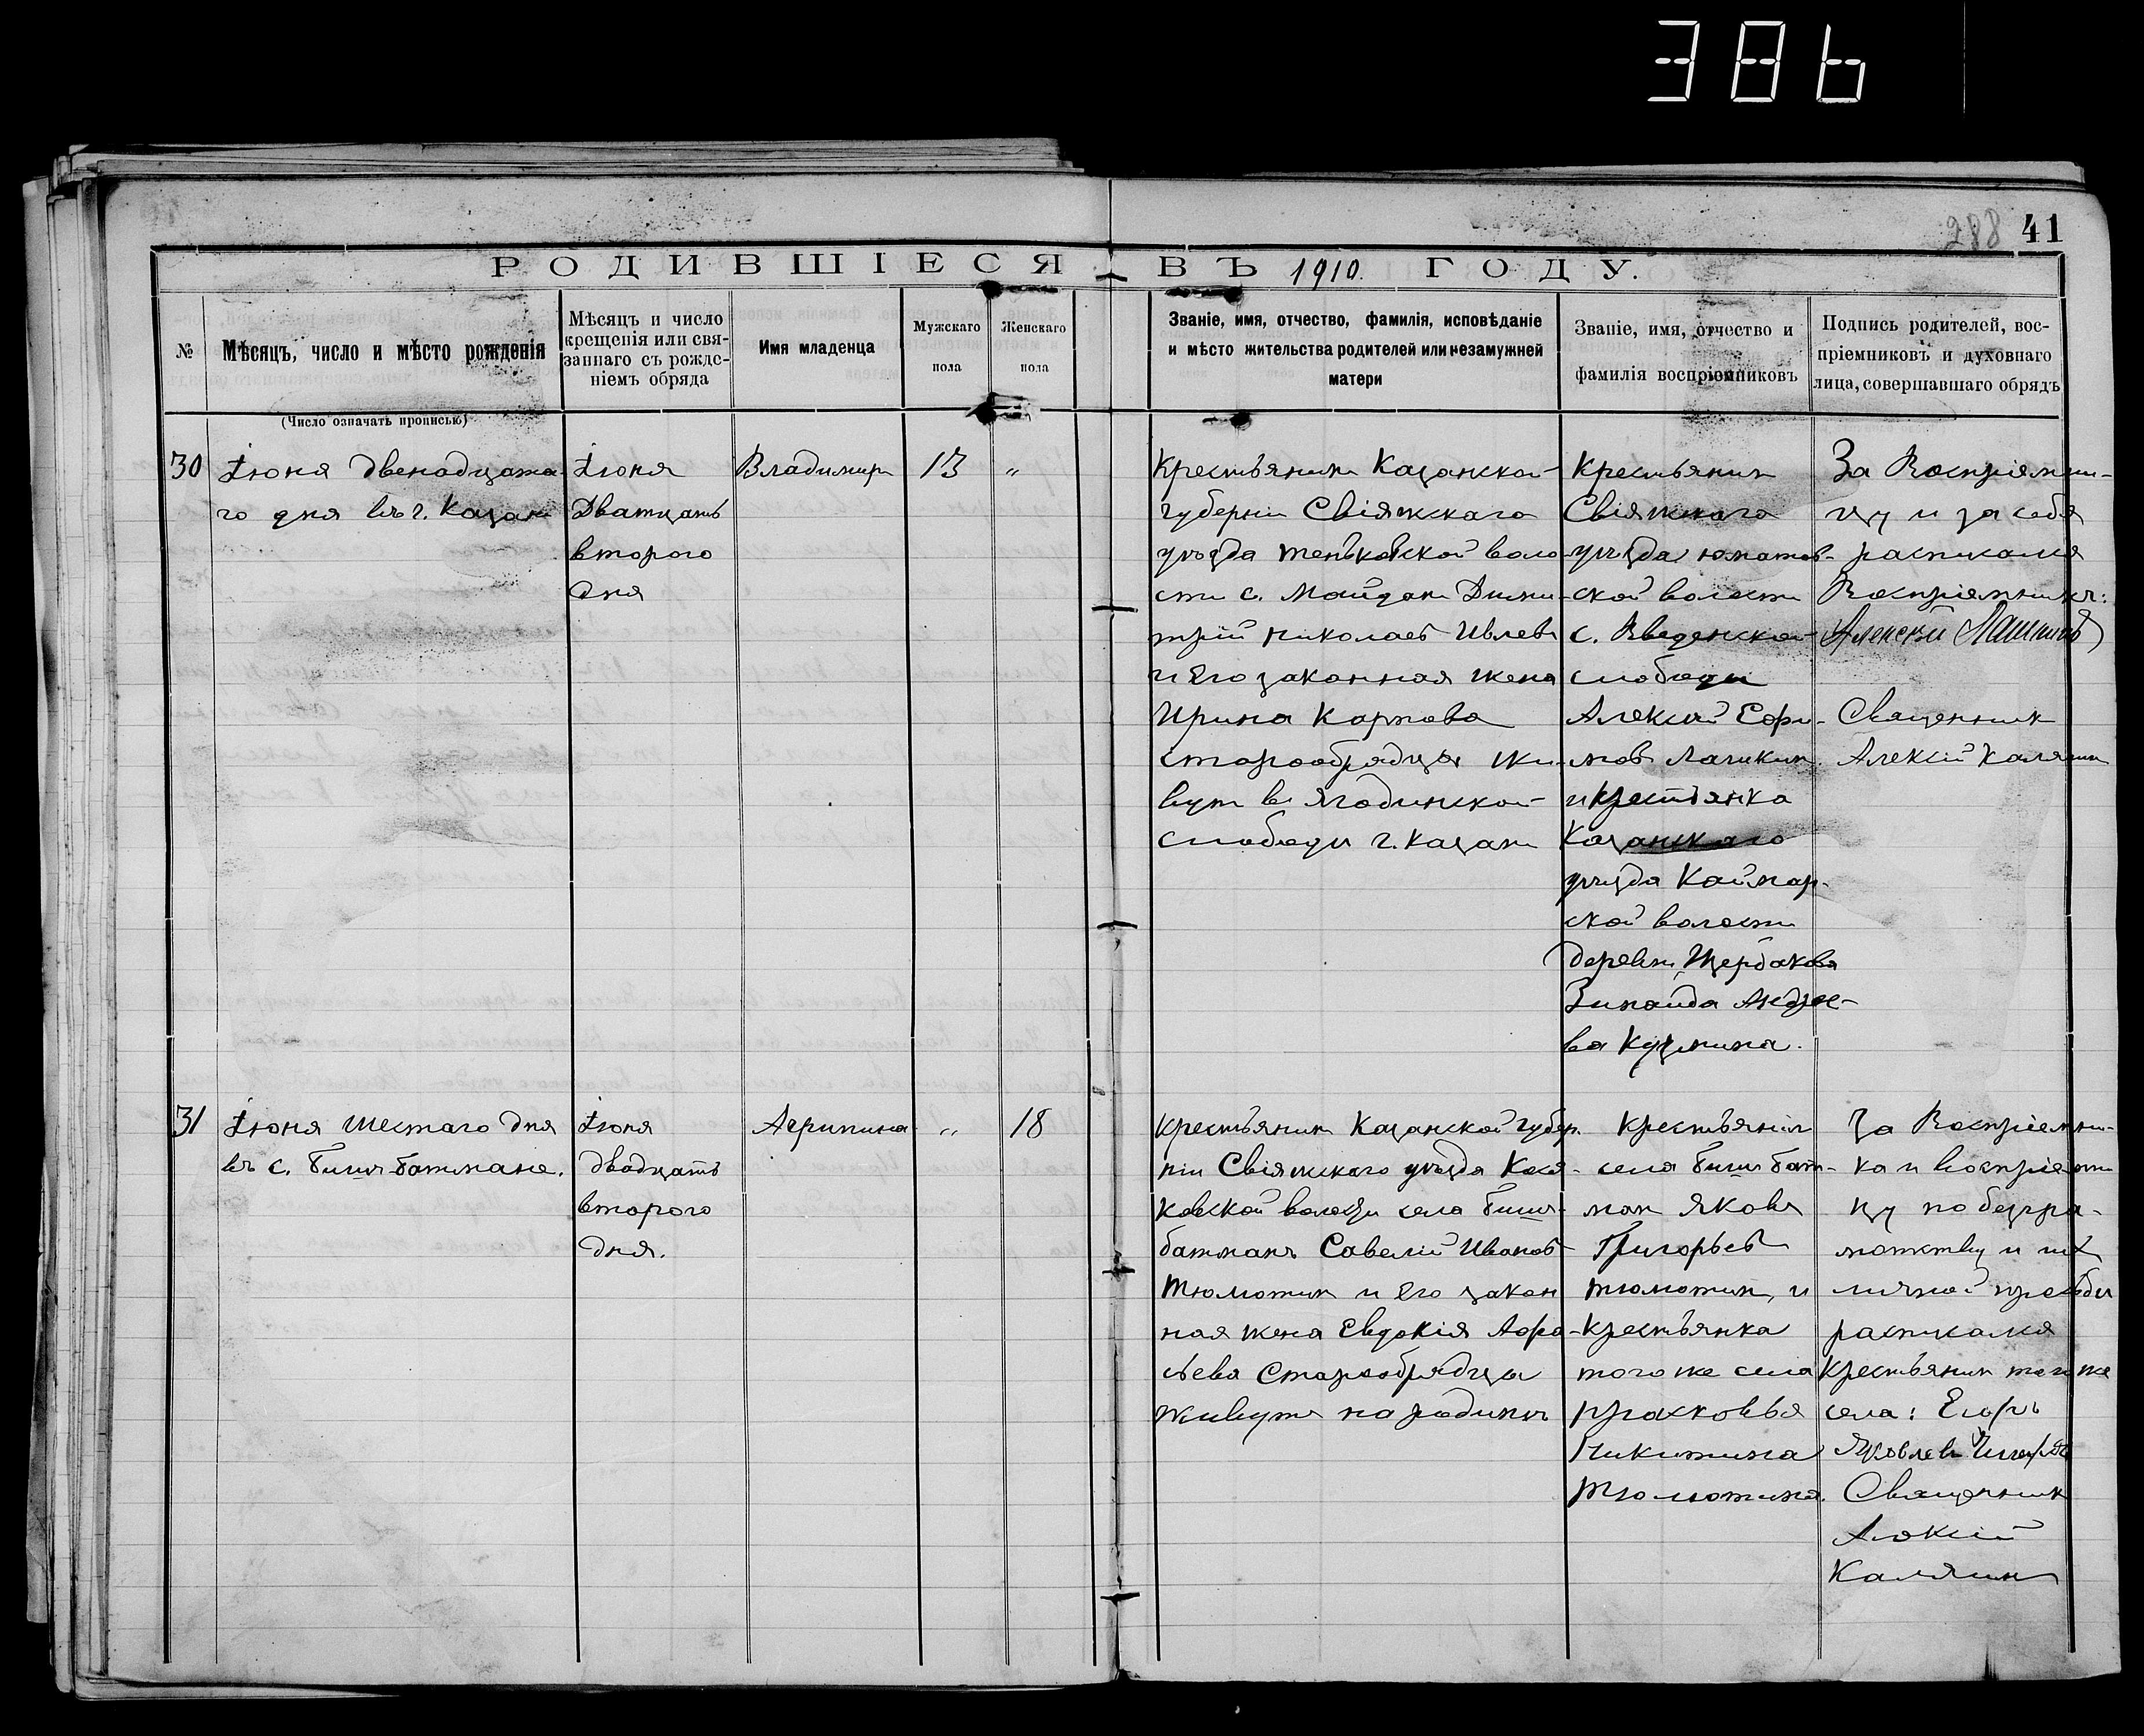 386
288 41
РОДИВШІЕСЯ ВЪ 1910. ГОДУ.
№
Мѣсяцъ, число и мѣсто рожденія
(Число означать прописью)
Мѣсяцъ и число
крещенія или свя-
заннаго съ рожде-
ніемъ обряда
Имя младенца
Мужскаго
пола
Женскаго
пола
Званіе, имя, отчество, фамилія, исповѣданіе
и мѣсто жительства родителей или незамужней
матери
Званіе, имя, отчество и
фамилія воспріемниковъ
Подпись родителей, вос-
пріемниковъ и духовнаго
лица, совершавшаго обрядъ
30
Іюня двенадцата-
го дня въ г. Казани
Іюня
Дватцать
второго
дня
Владимиръ
13
"
Крестьянинъ Казанской
губерніи Свіяжскаго
уѣзда теньковской воло-
сти с. Майдан Дими-
трій Николаев Ивлевъ
и Его законная жена
Ирина Карпова
старообрядцы жи-
вут въ Ягодинской
слободы г. Казани
Крестьянин
Свіяжскаго
уѣзда юматов-
ской волости
с. Введенской
слободы
Алексий Ефи-
мов Лашкин
и крестьянка
Казанскаго
уѣзда Каймар-
ской волости
деревни Щербаково
Зинаида Андре-
ва Кузмина.
За Воспріемни-
цу и за себя
расписался
Воспріемникъ:
Алексѣй Лашкинъ
Священник
Алексій Калягин
31
Іюня шестаго дня
въ с. Бишъ-батмане.
Іюня
двадцать
второго
дня.
Агрипина
"
18
Крестьянин Казанской губер.
ніи Свіяжскаго уѣзда Кося-
ковской волости села Бишъ-
батманъ Савелій Иванов
Тюмотин и Его закон
ная жена Евдокія Афо-
сьева Старообрядцы
живутъ на родинѣ
Крестьянин
села Бишъ бат-
ман Яковъ
Григорьев
Тюмотин, и
Крестьянка
того же села
Прасковья
Никитина
Тюмотина.
За Воспріемни-
ка и воспріемни
цу по безгра-
мотству и их
личной просьбы
расписался
Крестьянин того же
села: Егоръ
Яковлевъ
Священник
Алексій
Калягин